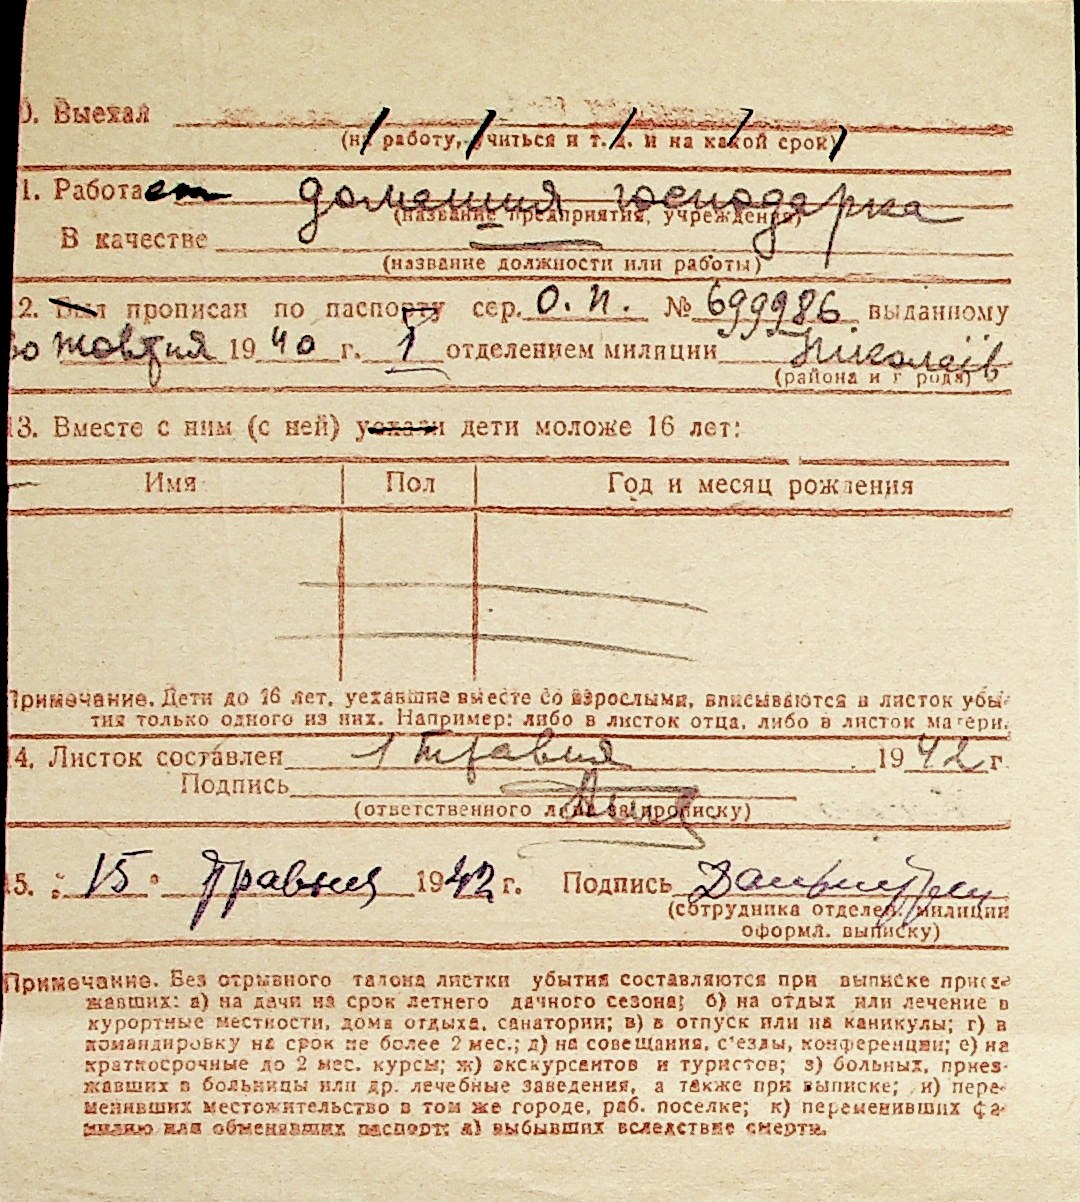 0. Выехал
(на работу, учиться и т. д. и на какой срок)
1. Работает домашня господарка
(название предприятия, учреждения)
В качестве
(название должности или работы)
12. Был прописан по паспорту сер. О. П. № 699986 выданному
30 жовтня 1940 г. 1 отделением милиции Ніколаїв
(района и города)
13. Вместе с ним (с ней) уехали дети моложе 16 лет:
Имя Пол Год и месяц рождения
Примечание. Дети до 16 лет, уехавшие вместе со взрослыми, вписываются в листок убы-
тия только одного из них. Например: либо в листок отца, либо в листок матери.
14. Листок составлен 1 травня 1942 г.
Подпись
(ответственного лица за прописку)
15. „ 15 " травня 1942 г. Подпись
(сотрудника отделен. милиции
оформл. выписку)
Примечание. Без отрывного талона листки убытия составляются при выписке приез-
жавших: а) на дачи на срок летнего дачного сезона; б) на отдых или лечение в
курортные местности, дома отдыха, санатории; в) в отпуск или на каникулы; г) в
командировку на срок не более 2 мес.; д) на совещания, с'езды, конференции; е) на
краткосрочные до 2 мес. курсы; ж) экскурсантов и туристов; з) больных, приез-
жавших в больницы или др. лечебные заведения, а также при выписке; и) пере-
менивших местожительство в том же городе, раб. поселке; к) переменивших фа-
милию или обменявших паспорт; л) выбывших вследствие смерти.